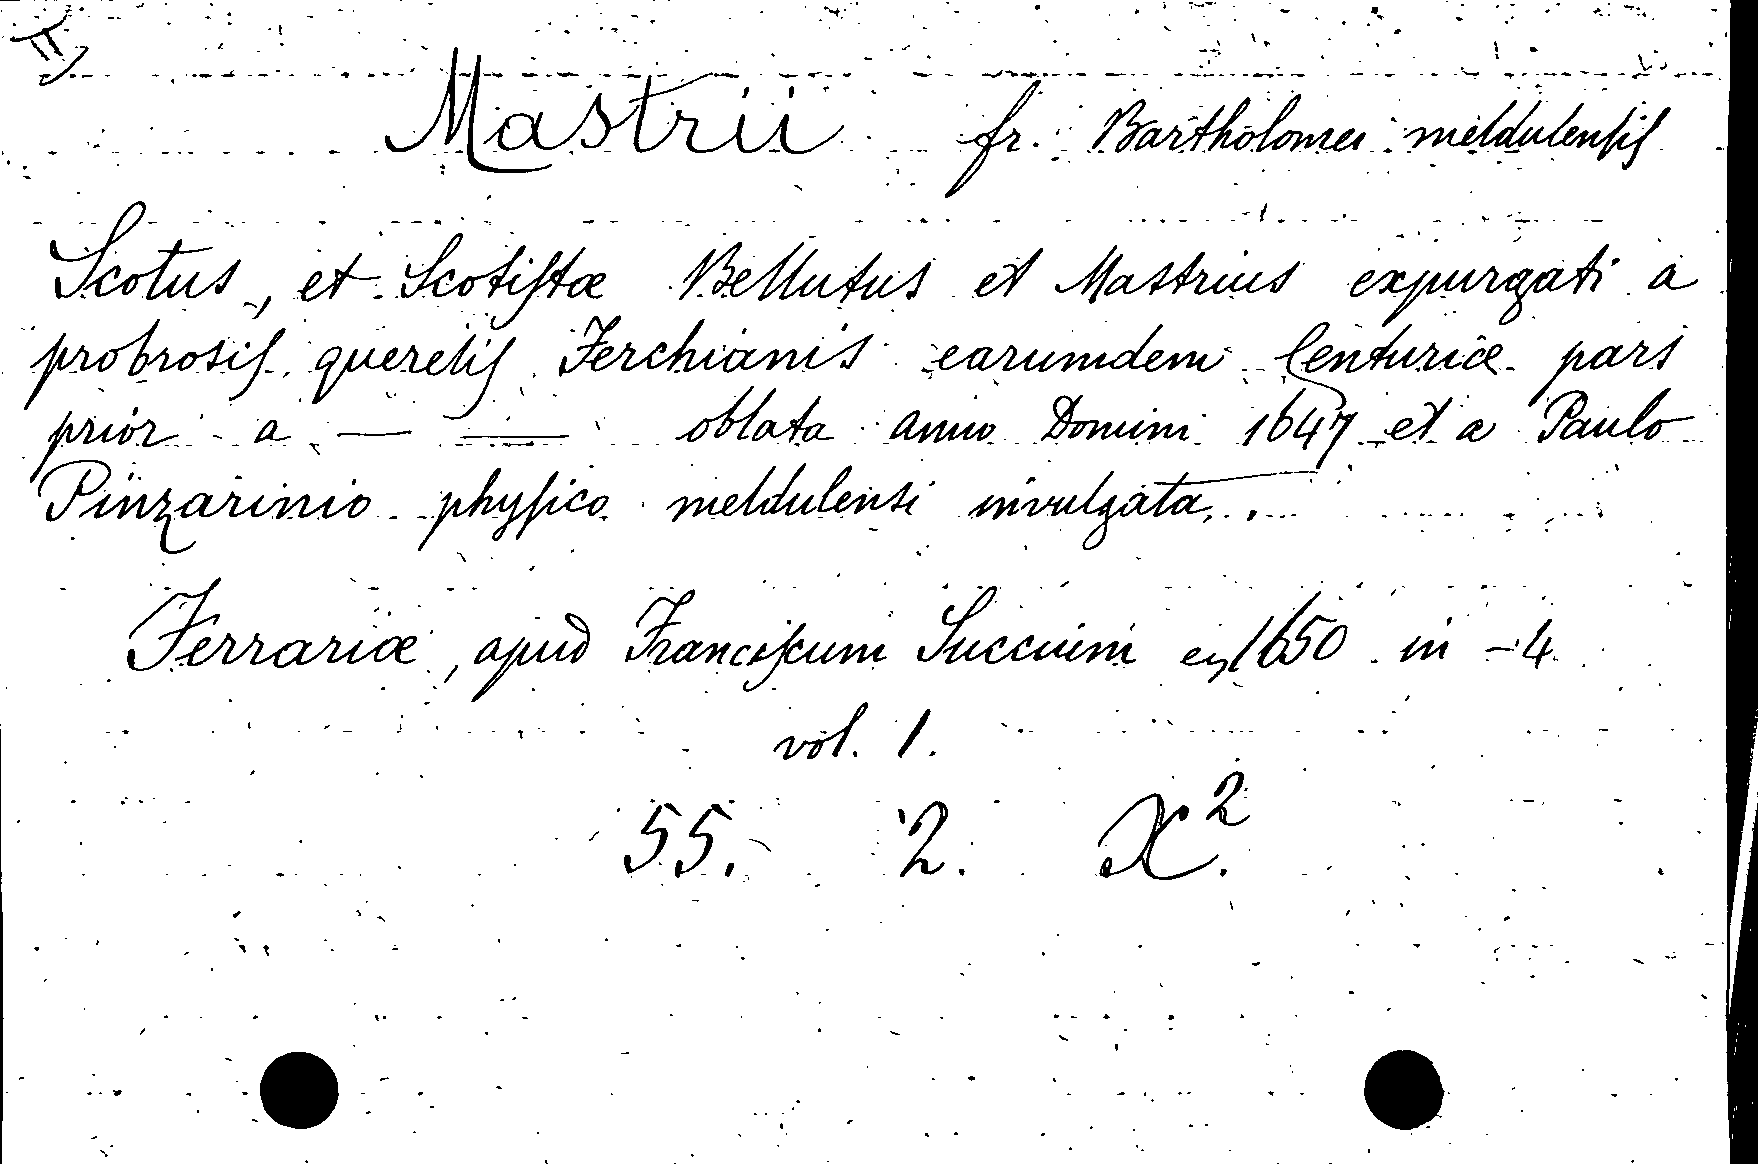 II
Mastrii fr. Bartholomei meldulensis
Scotus, et Scotistæ Bellutus et Mastrius expurgati a
probrosis querelis Ferchianis earumdem Centuriæ pars
prior a — — oblata anno Domini 1647 et a Paulo
Pinzarinio physico meldulensi invulgata.
Ferrariæ, apud Franciscum Succium 1650 in -4
vol. 1.
55. 2. X².